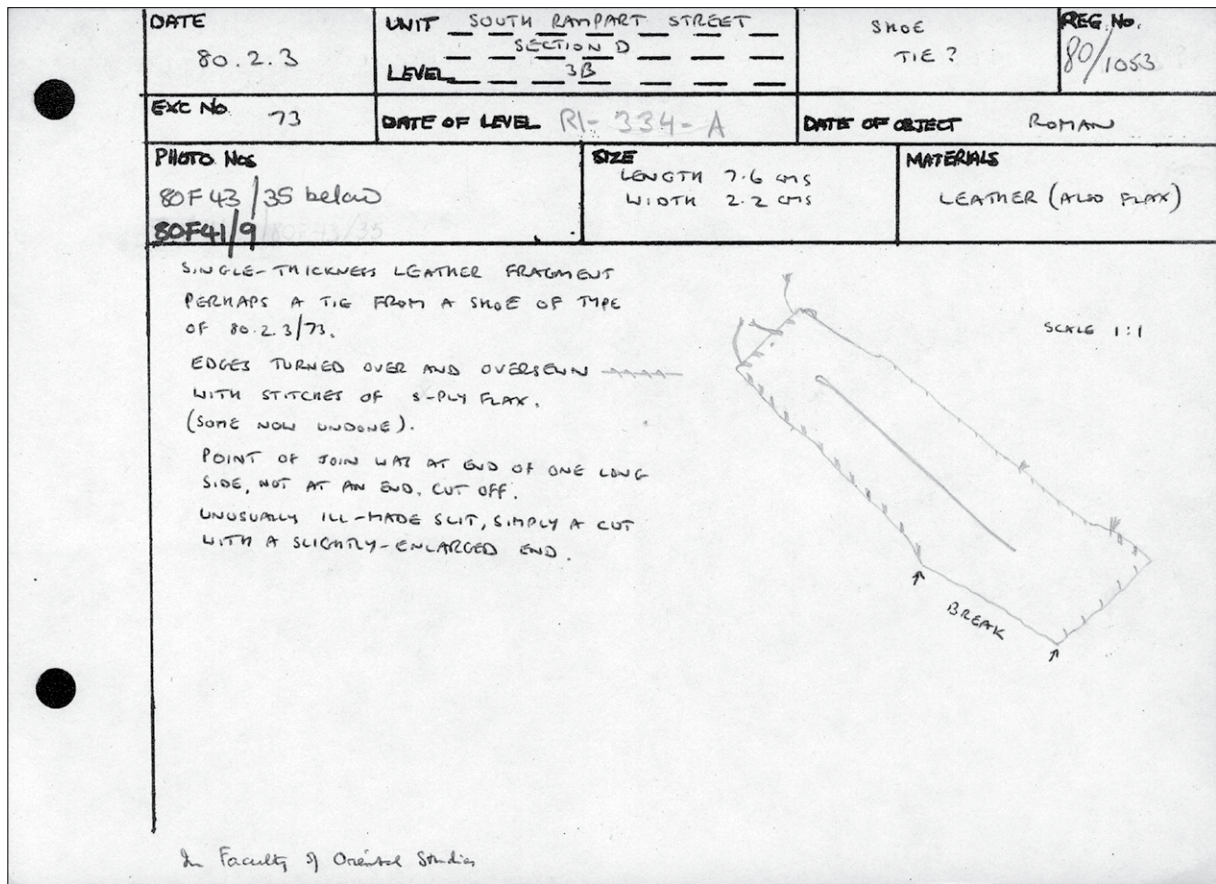 DATE
80.2.3
UNIT SOUTH RAMPART STREET
SECTION D
LEVEL 3B
SHOE
TIE?
REG. No.
80/1053
EXC No. 73
DATE OF LEVEL RI-334-A
DATE OF OBJECT ROMAN
PHOTO Nos
80F43/35 below
80F41/9
SIZE
LENGTH 7.6 cms
WIDTH 2.2 cms
MATERIALS
LEATHER (ALSO FLAX)
SINGLE-THICKNESS LEATHER FRAGMENT
PERHAPS A TIE FROM A SHOE OF TYPE
OF 80.2.3/73.
EDGES TURNED OVER AND OVERSEWN
WITH STITCHES OF S-PLY FLAX.
(SOME NOW UNDONE).
POINT OF JOIN WAS AT END OF ONE LONG
SIDE, NOT AT AN END. CUT OFF.
UNUSUALLY ILL-MADE SLIT, SIMPLY A CUT
WITH A SLIGHTLY-ENLARGED END.
SCALE 1:1
BREAK
In Faculty of Oriental Studies